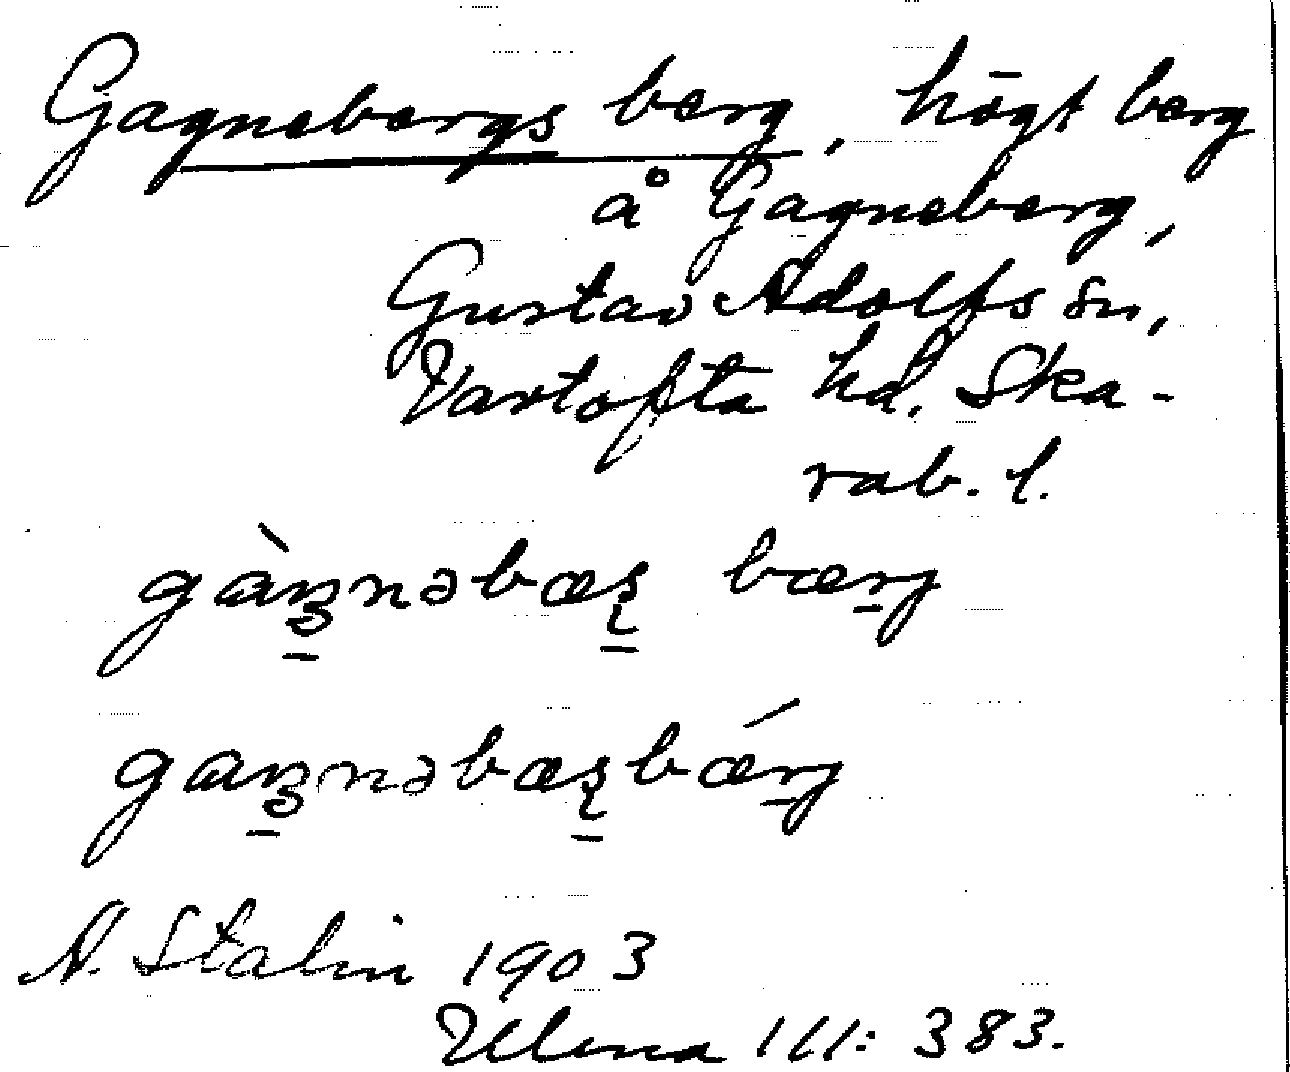 Gagnebergs berg, högt berg
å Gagneberg,
Gustav Adolfs sn,
Vartofta hd. Ska-
rab. l.
gàŋnəbæʂ bærj
gaŋnəbæʂbǽrj
A. Stalin 1903
Ulena III: 383.